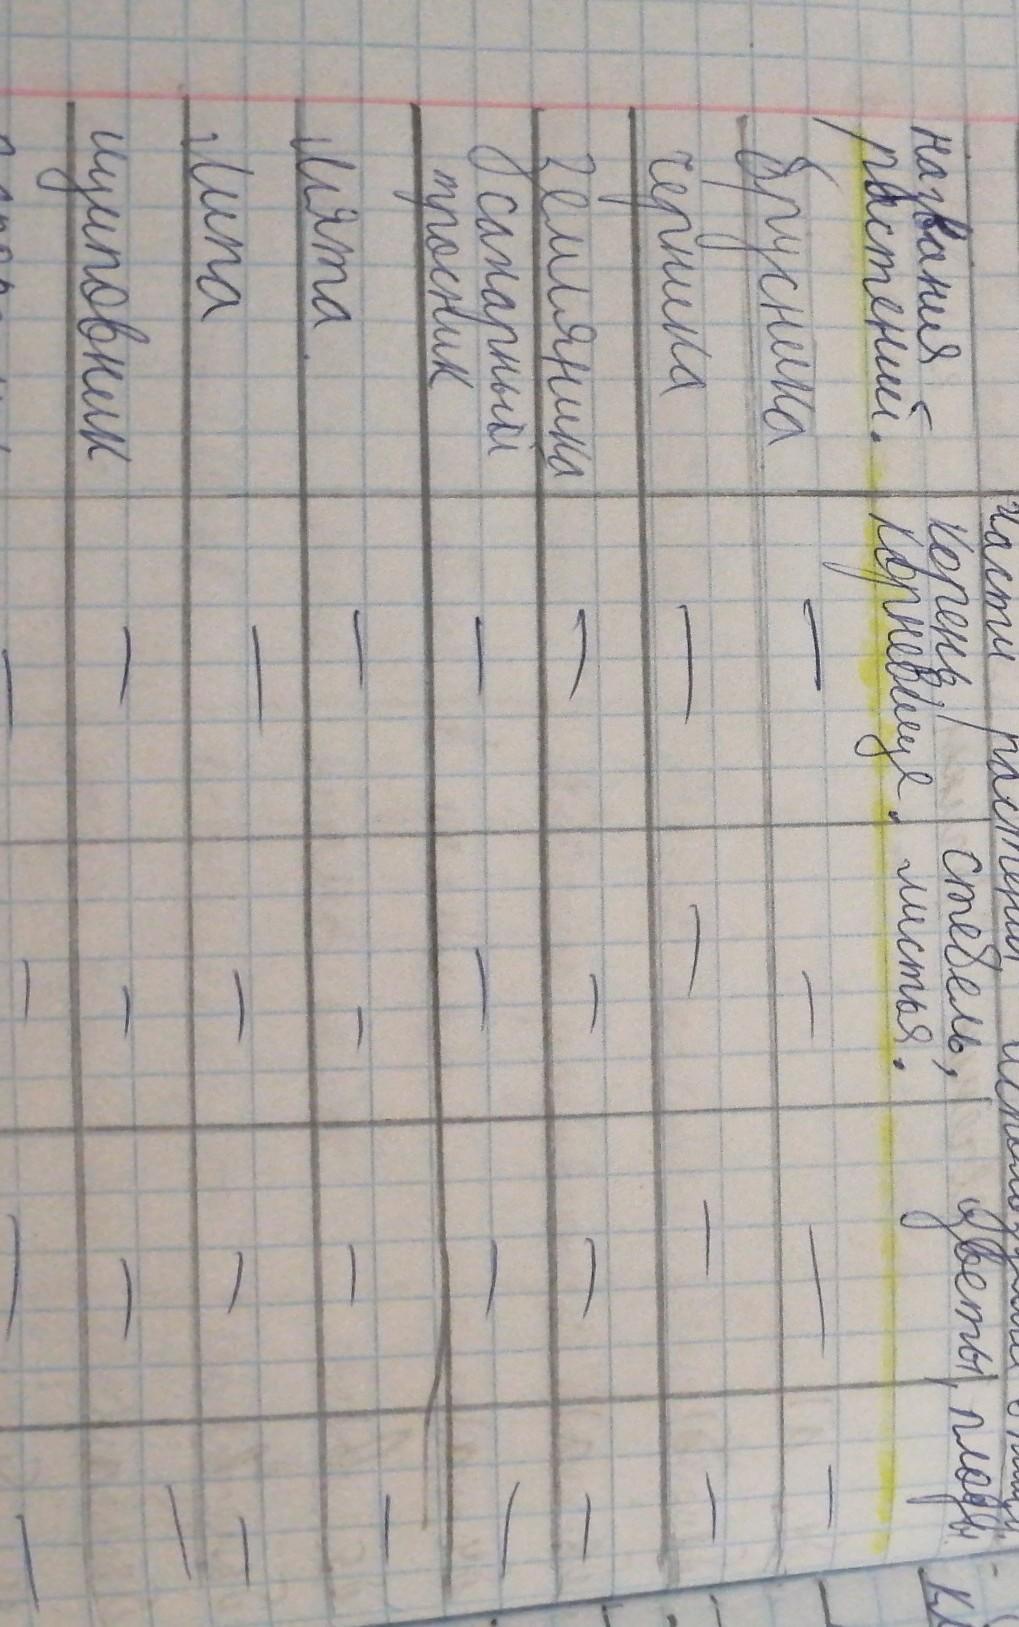 части растений используемые в пищу.
названия растений.
корень, корневище.
стебель, листья.
цветы, плоды
брусника — — — —
черника — — — —
земляника — — — —
бсонарный
тросник — — — —
мята. — — — —
Липа — — — —
шиповник — — — —